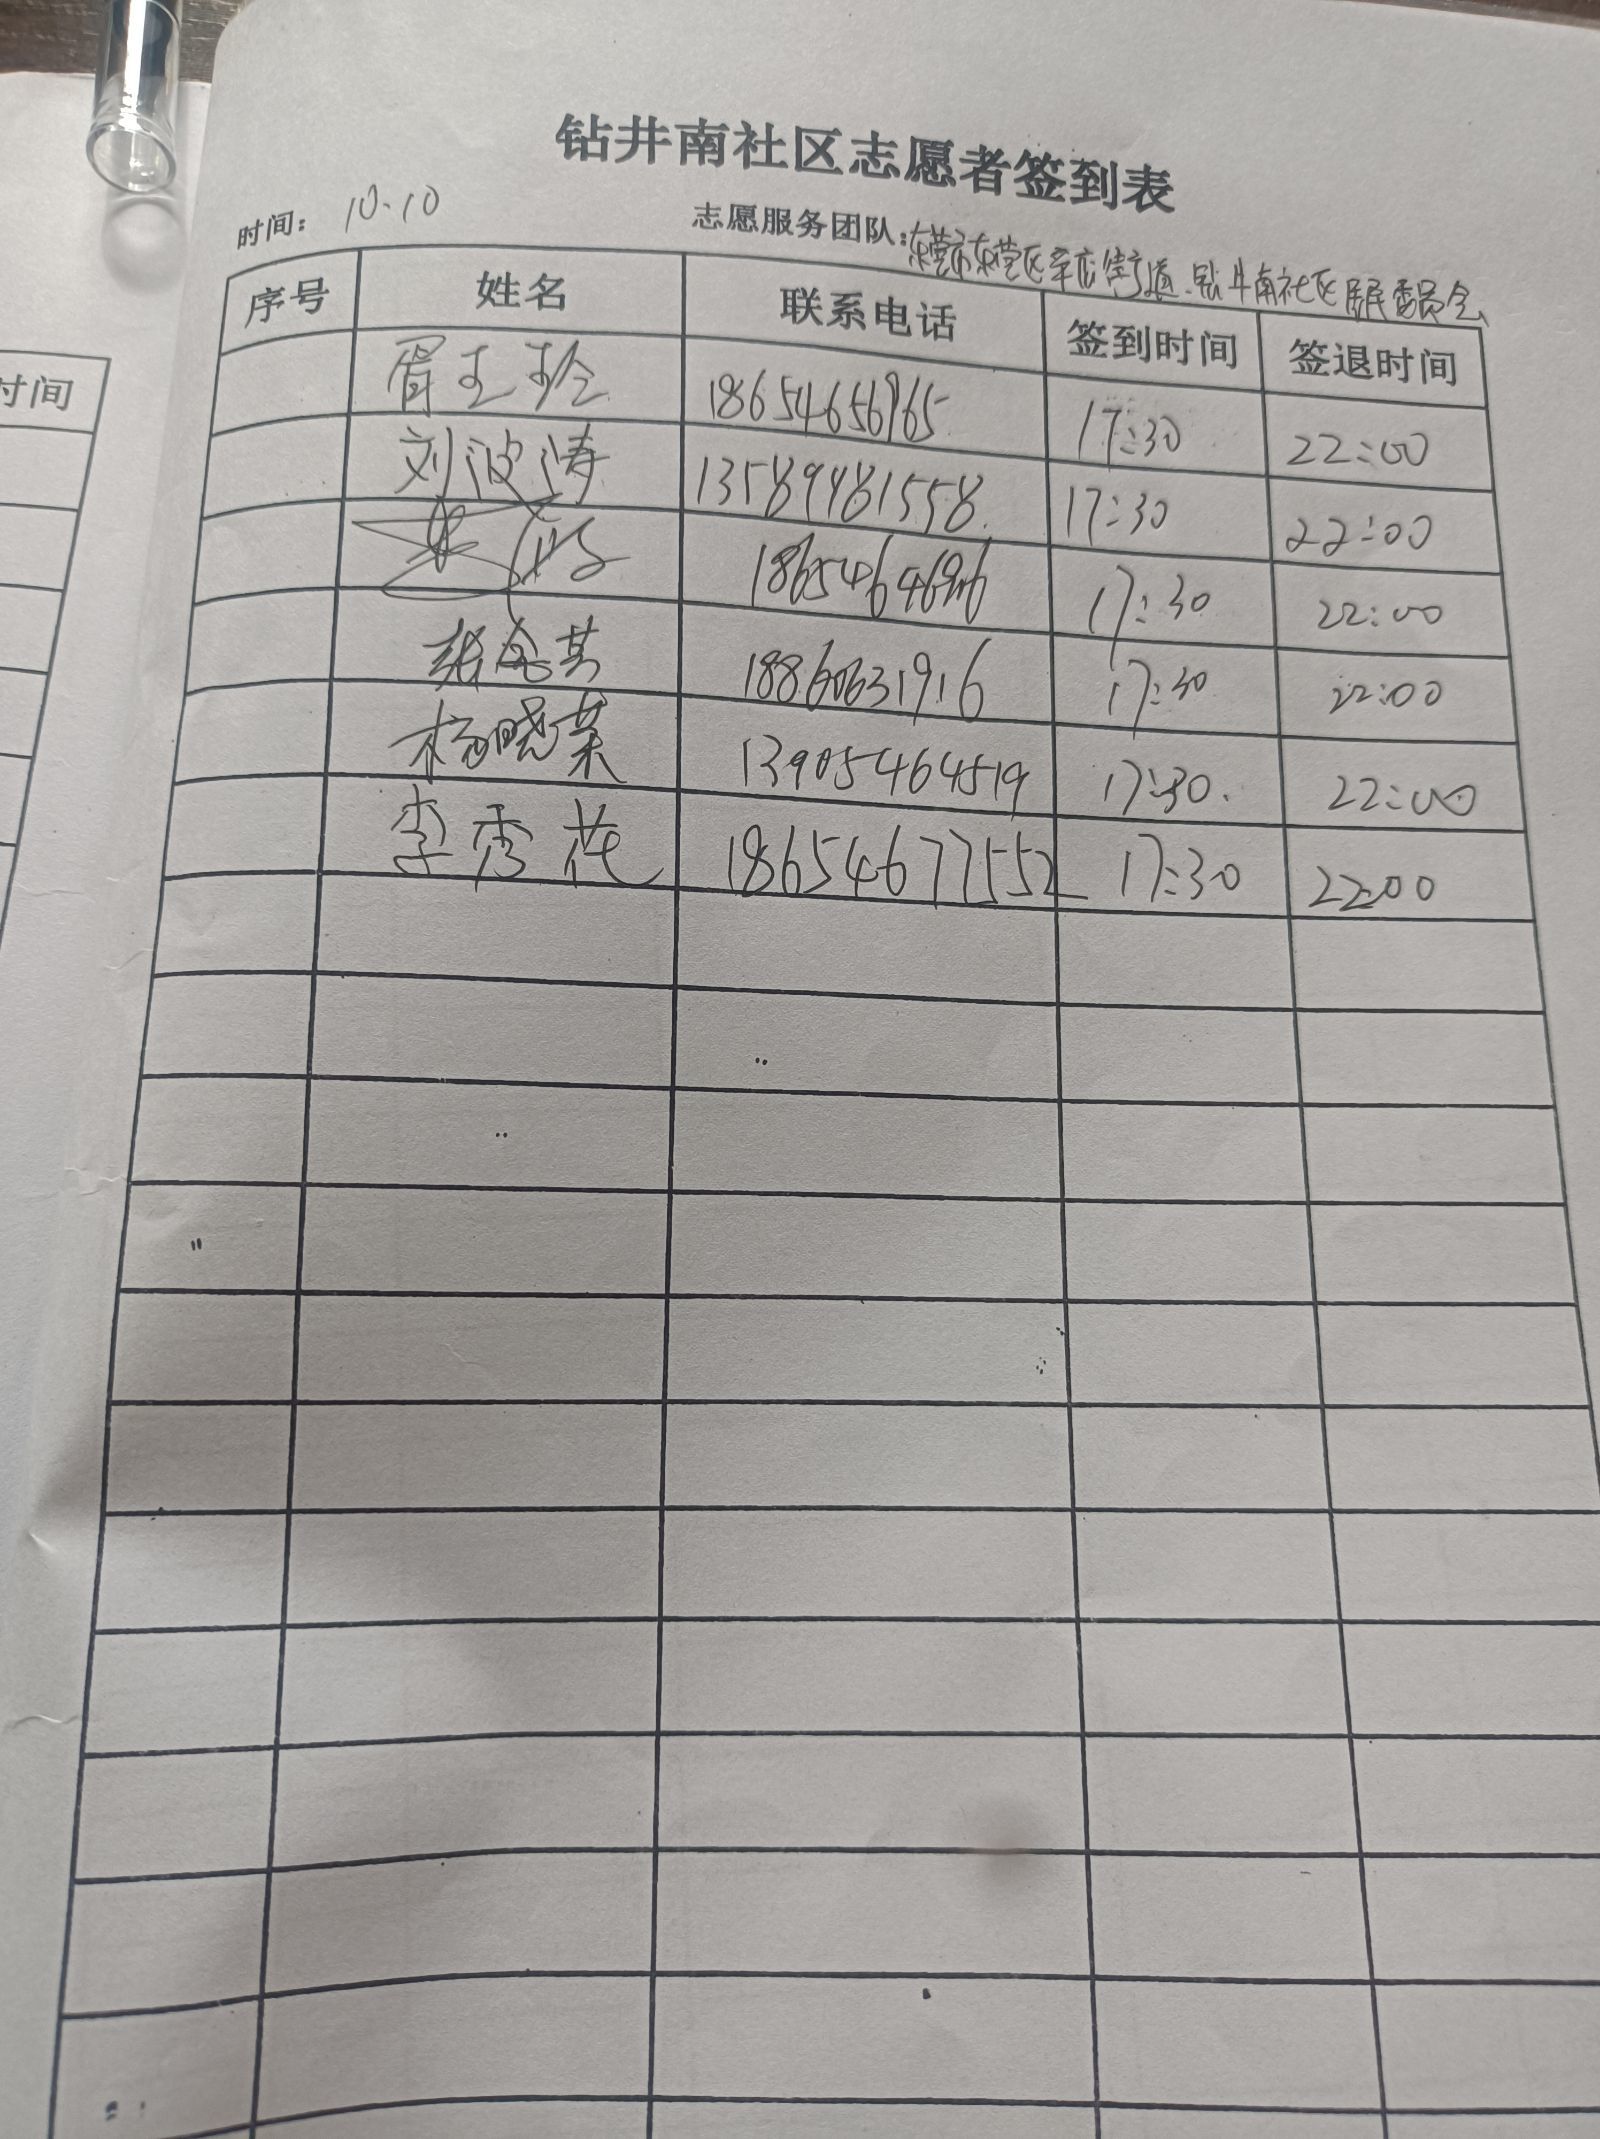 钻井南社区志愿者签到表
时间： 10.10 志愿服务团队：东营市东营区辛店街道钻井南社区居民委员会
序号 姓名 联系电话 签到时间 签退时间
胥玉珍 18654656965 17:30 22:00
刘波涛 13589981558 17:30 22:00
17:30 22:00
18860631916 17:30 22:00
杨晓荣 13905464519 17:30 22:00
李秀花 18654677552 17:30 22:00
时间